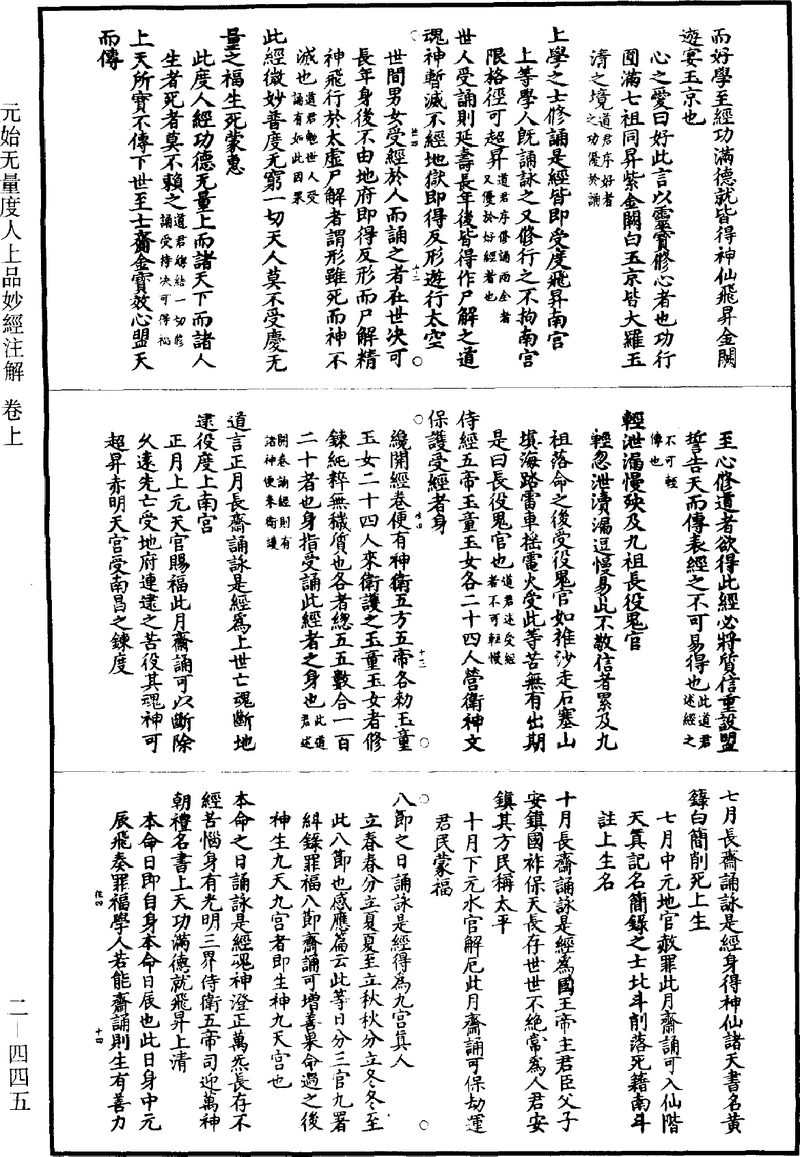 而好學至經功滿德就皆得神仙飛昇金闕
遊宴玉京也
心之愛曰好此言以靈寶修心者也功行
圓滿七祖同昇紫金闕白玉京皆大羅玉
清之境道君序好者之功優於誦
上學之士修誦是經皆即受度飛昇南宮
上等學人既誦詠之又修行之不拘南宮
限格徑可超昇道君序修誦兩全者又優於好經者也
世人受誦則延壽長年後皆得作尸解之道
魂神暫滅不經地獄即得反形遊行太空
世間男女受經於人而誦之者在世決可
長年身後不由地府即得反形而尸解精
神飛行於太虛尸解者謂形雖死而神不
滅也道君勉世人受誦有如此因果
此經微妙普度无窮一切天人莫不受慶无
量之福生死蒙惠
此度人經功德无量上而諸天下而諸人
生者死者莫不賴之道君總結一切修誦受持決可得福
上天所寶不傳下世至士齎金寶效心盟天
而傳
至心修道者欲得此經必將質信重設盟
誓告天而傳表經之不可易得也此道君述經之不可輕傳也
輕泄漏慢殃及九祖長役鬼官
輕忽泄瀆漏逗慢易此不敬信者累及九
祖落命之後受役鬼官如推沙走石塞山
填海路雷車搖電火受此等苦無有出期
是曰長役鬼官也道君述受經者不可輕慢
侍經五帝玉童玉女各二十四人營衛神文
保護受經者身
纔開經卷便有神衛五方五帝各勑玉童
玉女二十四人來衛護之玉童玉女者修
鍊純粹無穢質也各者總五五數合一百
二十者也身指受誦此經者之身也此道君述開卷誦經則有諸神便來衛護
道言正月長齋誦詠是經爲上世亡魂斷地
逮役度上南宮
正月上元天官賜福此月齋誦可以斷除
久遠先亡受地府連逮之苦役其魂神可
超昇赤明天宮受南昌之鍊度
七月長齋誦詠是經身得神仙諸天書名黃
籙白簡削死上生
七月中元地官赦罪此月齋誦可入仙階
天篆記名簡錄之士北斗削落死籍南斗
註上生名
十月長齋誦詠是經爲國王帝主君臣父子
安鎮國祚保天長存世世不絶常爲人君安
鎮其方民稱太平
十月下元水官解厄此月齋誦可保劫運
君民蒙福
八節之日誦詠是經得爲九宮真人
立春春分立夏夏至立秋秋分立冬冬至
此八節也感應篇云此等日分三官九署
糾錄罪福八節齋誦可增善果命過之後
神生九天九宮者即生神九天宮也
本命之日誦詠是經魂神澄正萬炁長存不
經苦惱身有光明三界侍衛五帝司迎萬神
朝禮名書上天功滿德就飛昇上清
本命日即自身本命日辰也此日身中元
辰飛奏罪福學人若能齋誦則生有善力
元始无量度人上品妙經注解 卷上
二—四四五